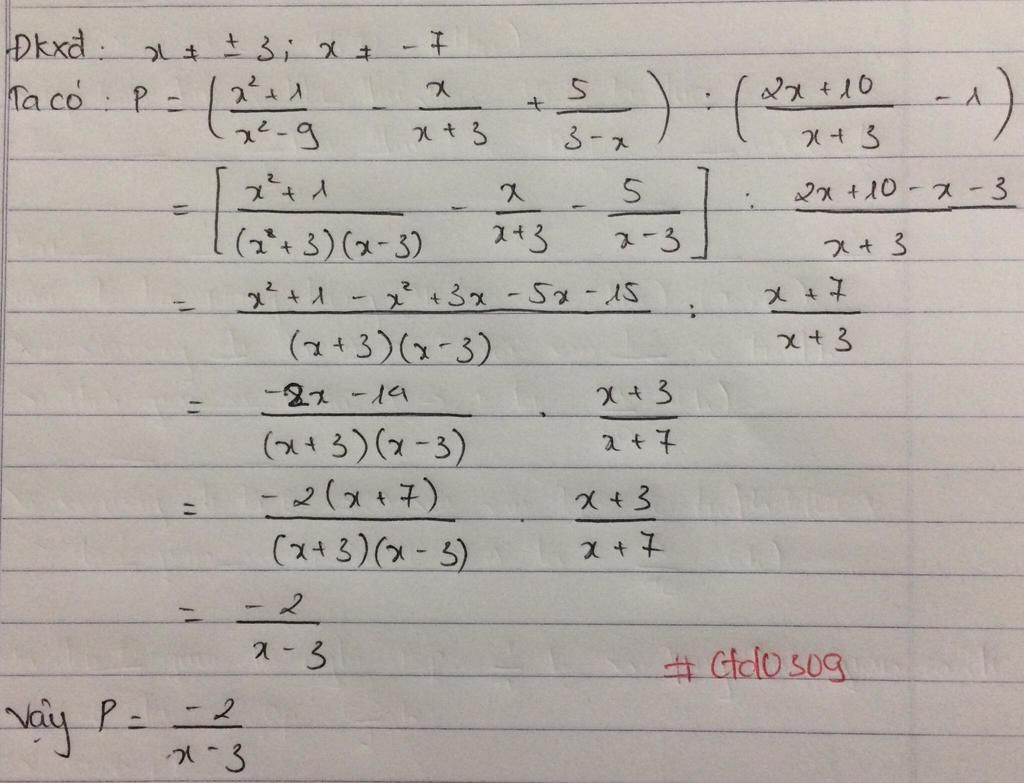 Đkxđ: x ≠ ± 3; x ≠ - 7
Ta có: P = ( (x² + 1)/(x² - 9) - x/(x + 3) + 5/(3 - x) ) : ( (2x + 10)/(x + 3) - 1 )
= [ (x² + 1)/((x² + 3)(x - 3)) - x/(x+3) - 5/(x - 3) ] : (2x + 10 - x - 3)/(x + 3)
= (x² + 1 - x² + 3x - 5x - 15)/((x + 3)(x - 3)) : (x + 7)/(x + 3)
= (-2x - 14)/((x + 3)(x - 3)) . (x + 3)/(x + 7)
= (- 2(x + 7))/((x + 3)(x - 3)) . (x + 3)/(x + 7)
= (- 2)/(x - 3)
Vậy P = (- 2)/(x - 3)